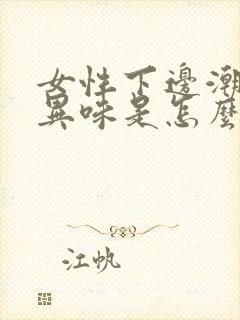 女性下邊潮
異味是怎麼
江帆